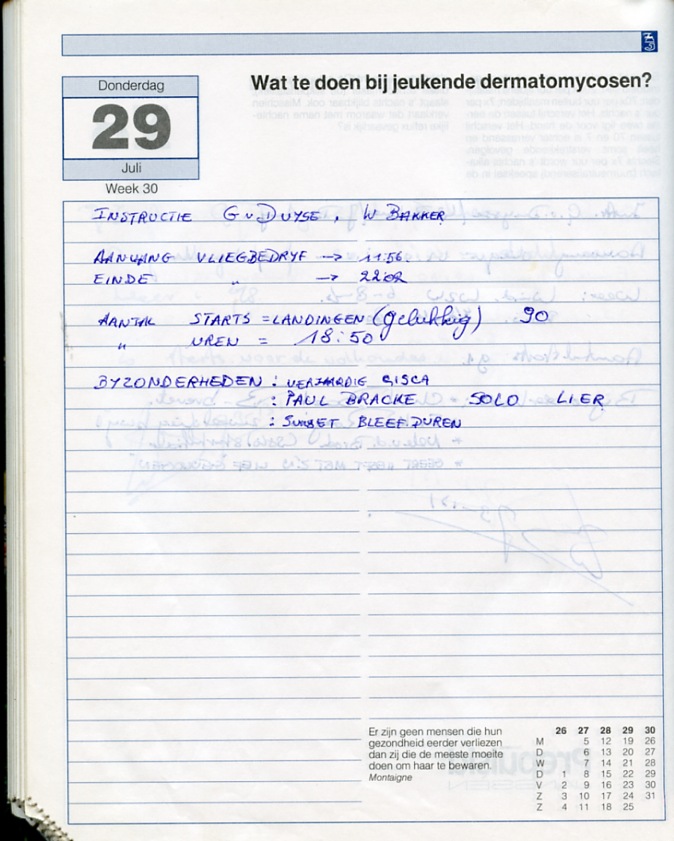 Donderdag
29
Juli
Week 30
Wat te doen bij jeukende dermatomycosen?
INSTRUCTIE G v DUYSE, W BAKKER
AANVANG VLIEGBEDRYF -> 11.56.
EINDE " -> 22.02
AANTAL STARTS = LANDINGEN (gelukkig) 90
" UREN = 18:50
BYZONDERHEDEN : VERJAARDIG GISCA
: PAUL BRACKE - SOLO LIER
: SUNSET BLEEF DUREN
Er zijn geen mensen die hun
gezondheid eerder verliezen
dan zij die de meeste moeite
doen om haar te bewaren.
Montaigne
26 27 28 29 30
M 5 12 19 26
D 6 13 20 27
W 7 14 21 28
D 1 8 15 22 29
V 2 9 16 23 30
Z 3 10 17 24 31
Z 4 11 18 25